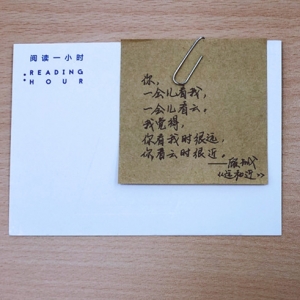 阅读一小时
READING
HOUR
你,
一会儿看我,
一会儿看云,
我觉得,
你看我时很远,
你看云时很近,
——顾城
《远和近》